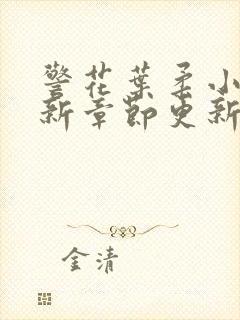 警花葉柔小
新章節更新
金清